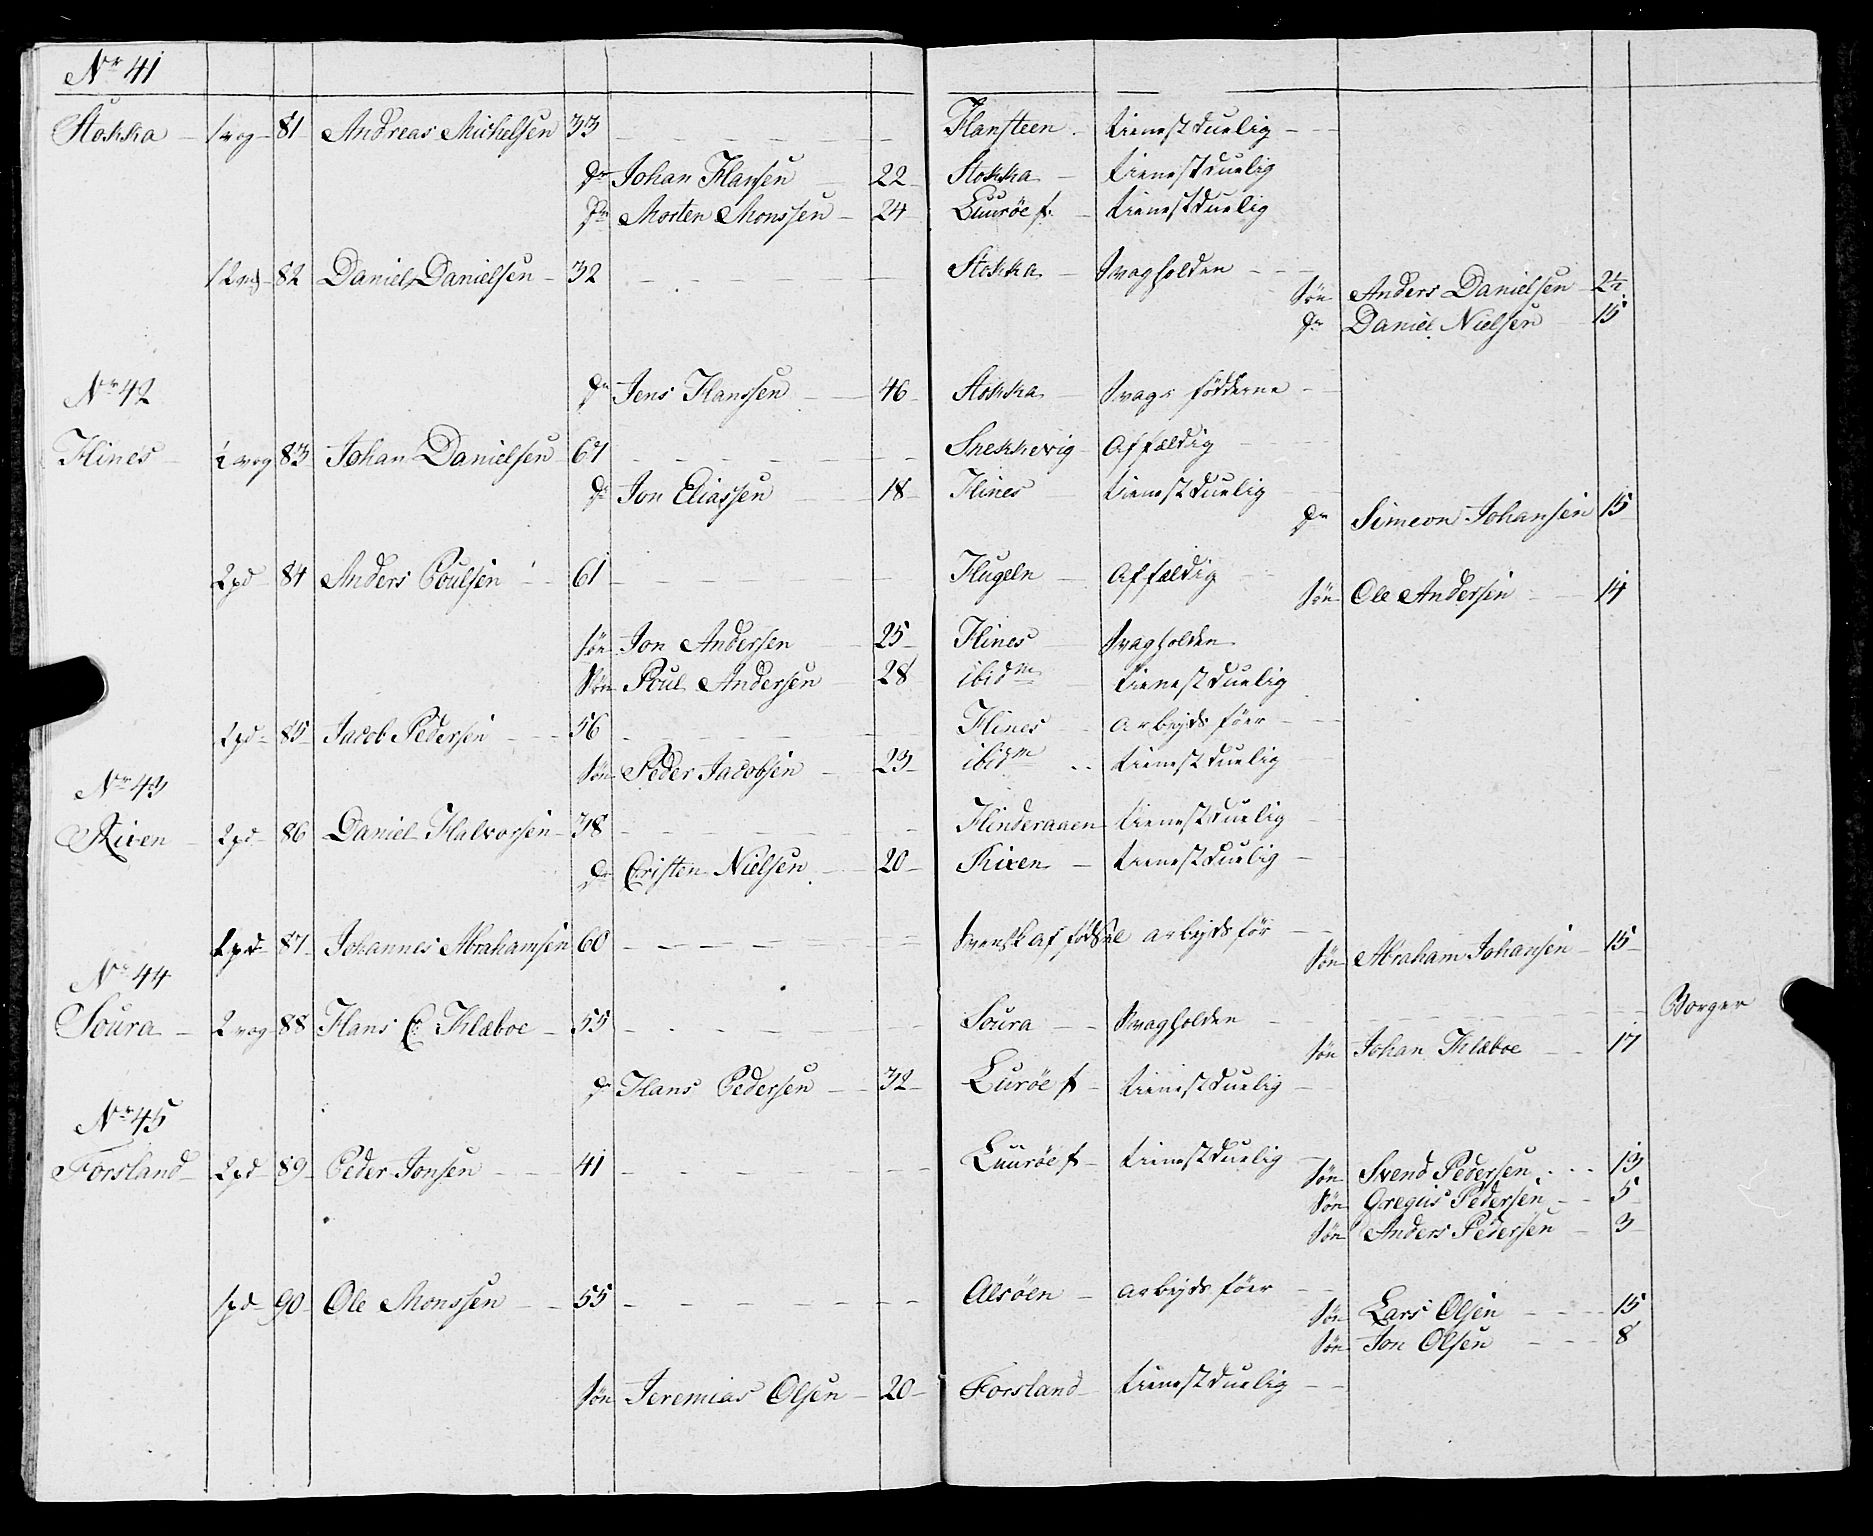 Nr 41
Stokka 1 vog 81 Andreas Michelsen 33 Hansteen tienestduelig
Dr Johan Hansen 22 Stokka tienestduelig
Dr Morten Monssen 24 Luurøe f. tienestduelig
82 Daniel Danielsen 32 Stokka Svagholden
Søn Anders Danielsen 2½
Dr Daniel Nielsen 15
Nr 42
Dr Jens Hanssen 46 Stokka Svage fødderne
Hines 1 vog 83 Johan Danielsen 67 Snekkevig Affældig
Dr Jon Eliassen 18 Hines tienestduelig
Dr Simeon Johansen 15
2 pd 84 Anders Poulsen 61 Hugeln Affældig
Søn Ole Andersen 14
Søn Jon Andersen 25 Hines Svagholden
Søn Poul Andersen 28 ibidm tienestduelig
2 pd 85 Jacob Pedersen 56 Hines arbejdsføer
Søn Peder Jacobsen 23 ibidm tienestduelig
Nr 43
Riven 2 pd 86 Daniel Halvorsen 38 Hinderaaen tienestduelig
Dr Cristen Nielsen 20 Riven tienestduelig
2 pd 87 Johannes Abrahamsen 60 Svensk af fødsel arbejdsfør
Søn Abraham Johansen 15
Nr 44
Soura 2 vog 88 Hans C: Klæboe 55 Soura Svagholden Borger
Søn Johan Klæboe 17
Dr Hans Pedersen 32 Lurøe f tienestduelig
Nr 45
Forsland 2 pd 89 Peder Jonsen 41 Luurøe f tienestduelig
Søn Svend Pedersen 13
Søn Gregus Pedersen 5
Søn Anders Pedersen 3
1 pd 90 Ole Monssen 55 Alsøen arbejdsføer
Søn Lars Olsen 15
Søn Jon Olsen 8
Søn Jeremias Olsen 20 Forsland tienestduelig